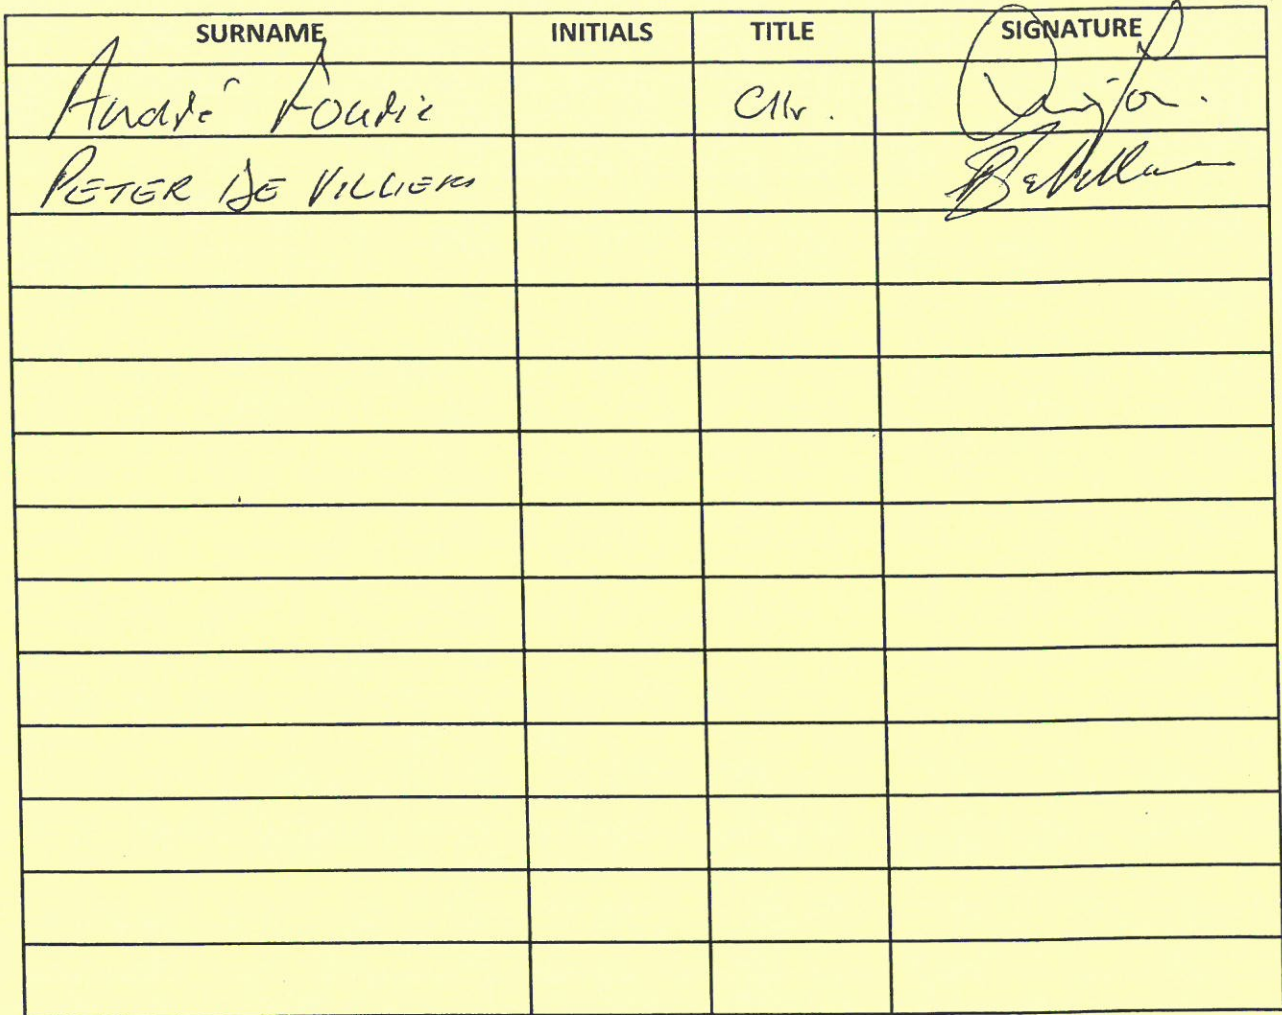 SURNAME INITIALS TITLE SIGNATURE
André Fourie Cllr.
PETER DE VILLIERS